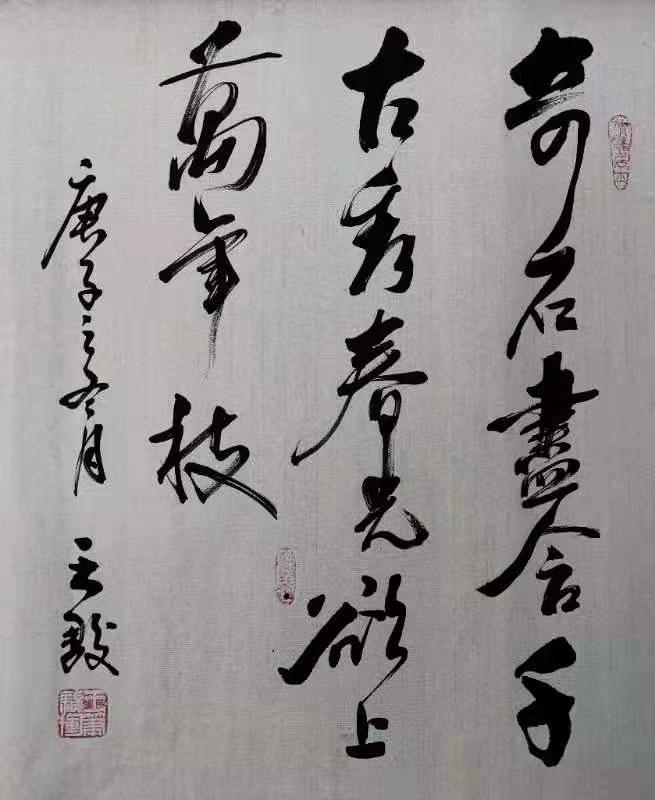 奇石盡含千
古秀春光欲上
萬年枝
庚子之冬月
王毅